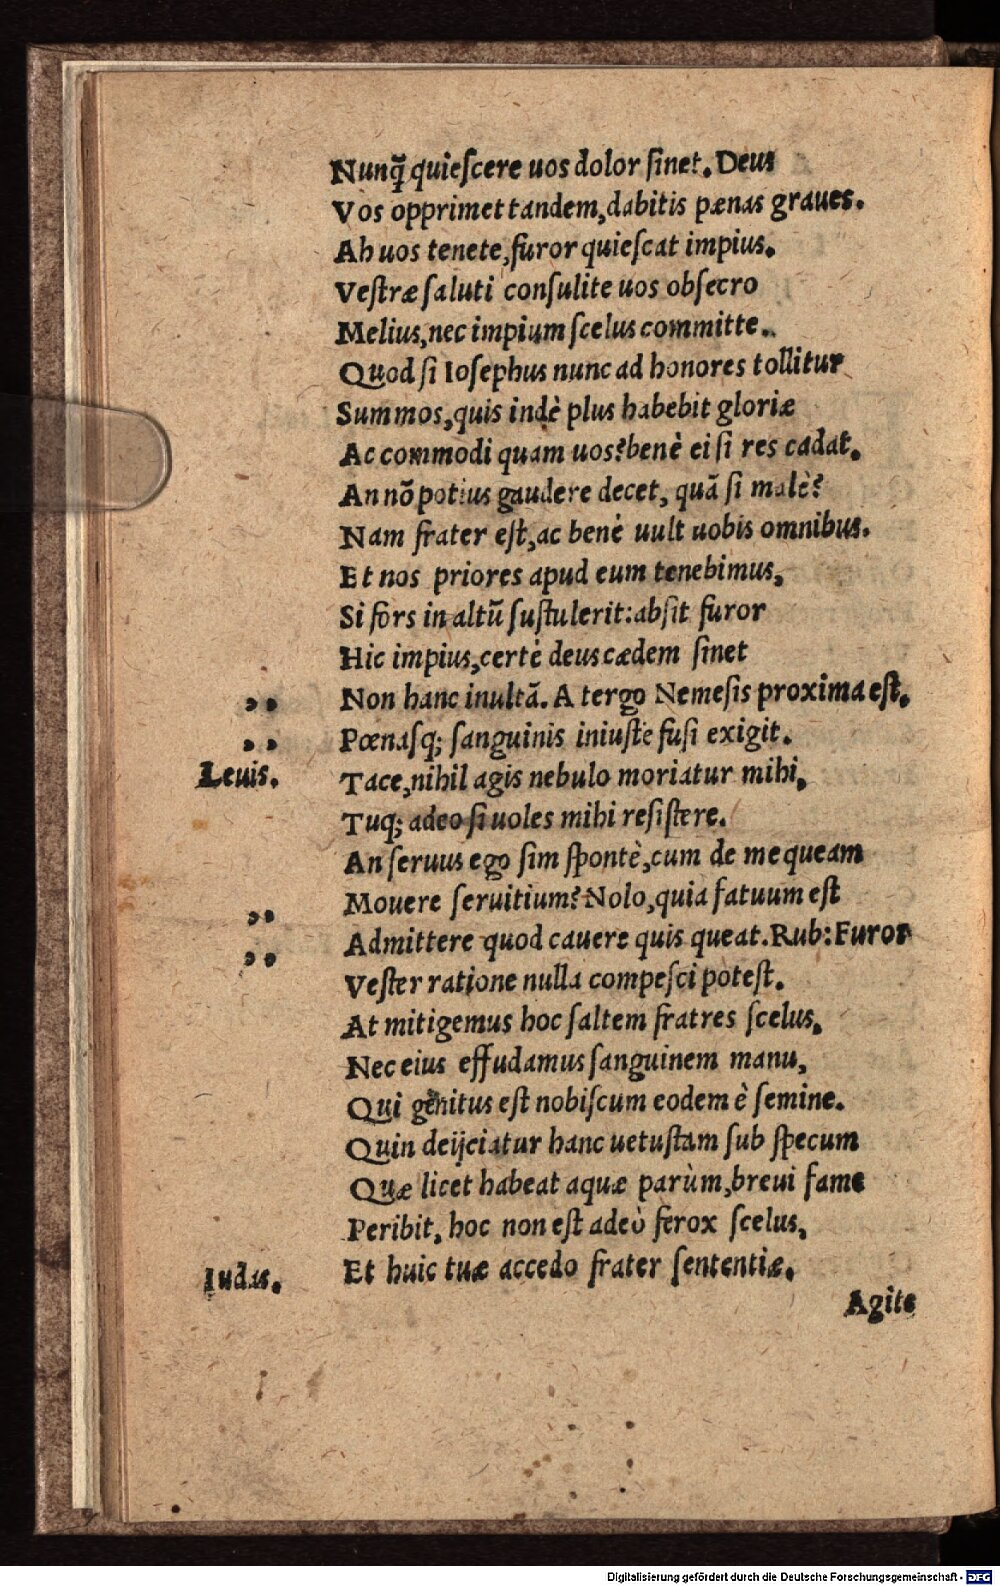 Nunq̃ quieſcere uos dolor ſinet. Deus
Vos opprimet tandem, dabitis pænas graues.
Ah uos tenete, furor quieſcat impius.
Veſtræ ſaluti conſulite uos obſecro
Melius, nec impium ſcelus committe..
Quod ſi Ioſephus nunc ad honores tollitur
Summos, quis indè plus habebit gloriæ
Ac commodi quam uos? benè ei ſi res cadat.
An nõ potius gaudere decet, quã ſi malè?
Nam frater eſt, ac benè uult uobis omnibus.
Et nos priores apud eum tenebimus,
Si fors in altũ ſuſtulerit: abſit furor
Hic impius, certè deus cædem ſinet
„ Non hanc inultã. A tergo Nemeſis proxima eſt.
„ Pœnaſq; ſanguinis iniuſtè fuſi exigit.
Leuis. Tace, nihil agis nebulo moriatur mihi,
Tuq; adeo ſi uoles mihi reſiſtere.
An ſeruus ego ſim ſpontè, cum de me queam
„ Mouere ſeruitium? Nolo, quia fatuum eſt
„ Admittere quod cauere quis queat. Rub: Furor
Veſter ratione nulla compeſci poteſt.
At mitigemus hoc ſaltem fratres ſcelus,
Nec eius effudamus ſanguinem manu,
Qui genitus eſt nobiſcum eodem è ſemine.
Quin deijciatur hanc uetuſtam ſub ſpecum
Quæ licet habeat aquæ parùm, breui fame
Peribit, hoc non eſt adeò ferox ſcelus,
Iudas. Et huic tuæ accedo frater ſententiæ.
Agite
Digitalisierung gefördert durch die Deutsche Forschungsgemeinschaft - DFG